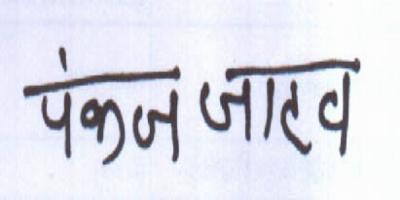 पंकज जाटव